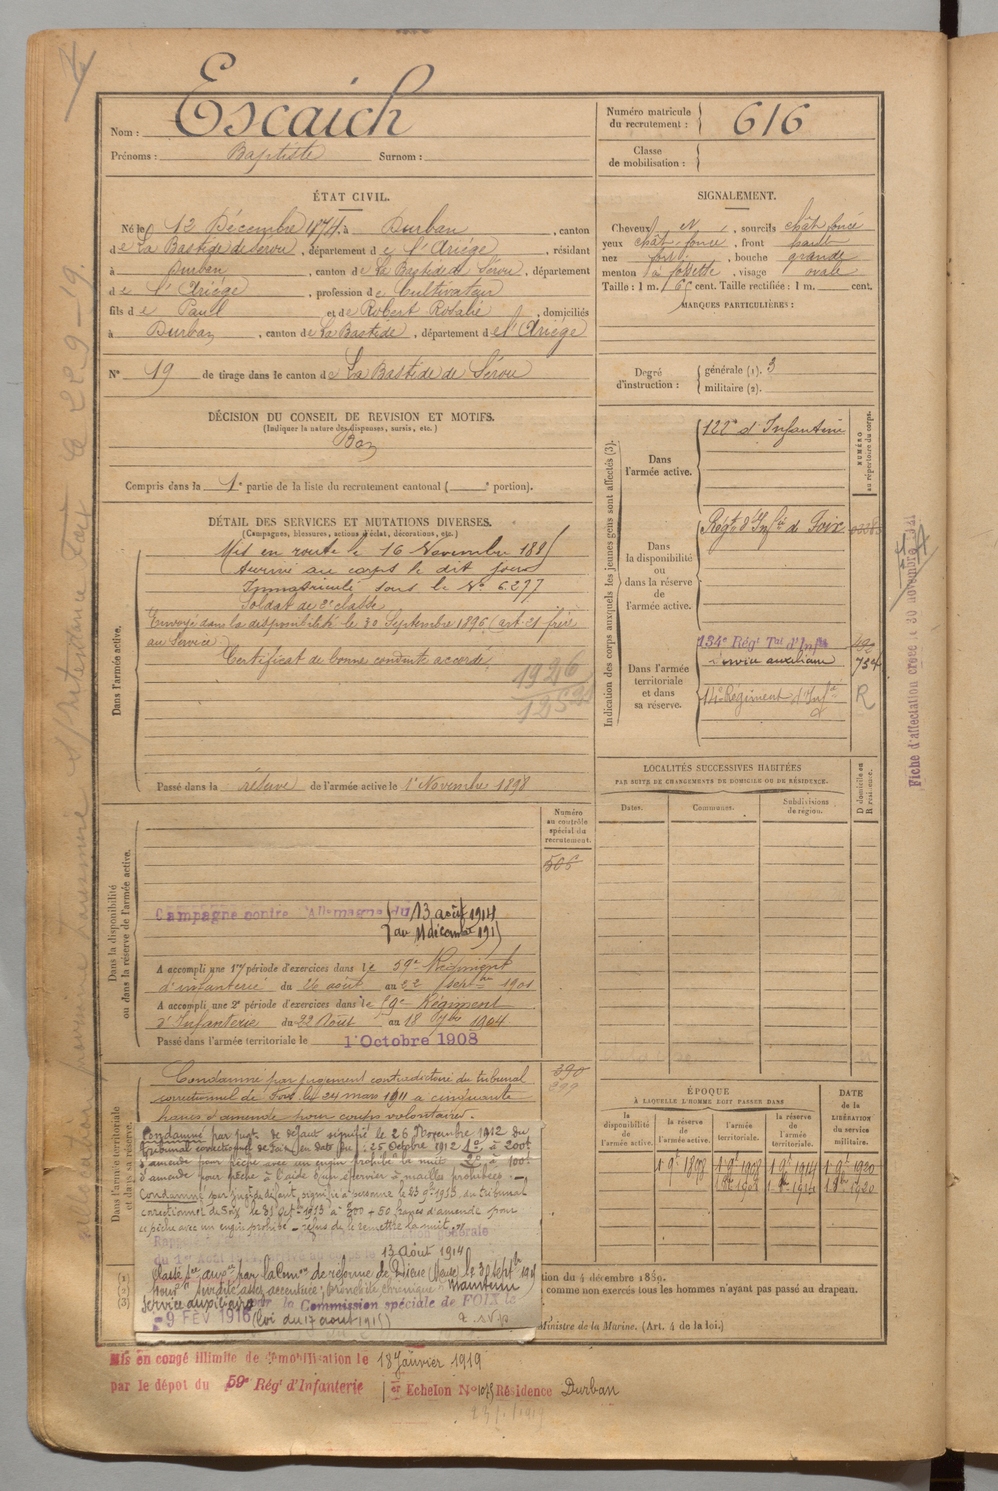 Nom : Escaich
Prénoms : Baptiste Surnom :
Numéro matricule du recrutement : 616
Classe de mobilisation :
ÉTAT CIVIL.
Né le 12 Décembre 1874 à Durban, canton
de La Bastide de Sérou, département de l'Ariège, résidant
à Durban, canton de La Bastide de Sérou, département
de l'Ariège, profession de Cultivateur
fils de Paul et de Robert Rosalie, domiciliés
à Durban, canton de La Bastide, département de l'Ariège
N° 19 de tirage dans le canton de La Bastide de Sérou
SIGNALEMENT.
Cheveux N, sourcils chât foncé
yeux chât-foncé, front haut
nez fort, bouche grande
menton à fossette, visage ovale
Taille : 1 m. 66 cent. Taille rectifiée : 1 m. cent.
MARQUES PARTICULIÈRES :
Degré d'instruction : générale (1). 3
militaire (2).
DÉCISION DU CONSEIL DE REVISION ET MOTIFS.
(Indiquer la nature des dispenses, sursis, etc.)
Bon
Compris dans la 1e partie de la liste du recrutement cantonal ( e portion).
DÉTAIL DES SERVICES ET MUTATIONS DIVERSES.
(Campagnes, blessures, actions d'éclat, décorations, etc.)
Dans l'armée active.
Mis en route le 16 Novembre 1895
Arrivé au corps le dit jour
Immatriculé sous le N° 6277
Soldat de 2e classe
Envoyé dans la disponibilité le 30 Septembre 1896 (art 21 frère
au Service)
Certificat de bonne conduite accordé.
1926
Passé dans la réserve de l'armée active le 1er Novembre 1898
Indication des corps auxquels les jeunes gens sont affectés (3).
NUMÉRO au répertoire du corps.
Dans l'armée active.
122e d'Infanterie
Dans la disponibilité ou dans la réserve de l'armée active.
Régt d'Infie de Foix
Dans l'armée territoriale et dans sa réserve.
134e Régt Tal d'Infie
Service auxiliaire
14e Régiment d'Infie
R
Fiche d'affectation créée le 30 novembre 1921
LOCALITÉS SUCCESSIVES HABITÉES
PAR SUITE DE CHANGEMENTS DE DOMICILE OU DE RÉSIDENCE.
Dates. Communes. Subdivisions de région. D domicile ou R résidence.
Dans la disponibilité ou dans la réserve de l'armée active.
Numéro au contrôle spécial du recrutement.
506
Campagne contre l'Allemagne du 13 août 1914
au 11 décembre 1915
A accompli une 1re période d'exercices dans le 59e Régiment
d'infanterie du 26 août au 22 septbre 1901
A accompli une 2e période d'exercices dans le 59e Régiment
d'Infanterie du 22 Août au 18 7bre 1904
Passé dans l'armée territoriale le 1 Octobre 1908
Dans l'armée territoriale et dans sa réserve.
390
Condamné par jugement contradictoire du tribunal
correctionnel de Foix le 24 mars 1911 à cinquante
francs d'amende pour coups volontaires.
Condamné par jugt de défaut signifié le 26 Novembre 1912 du
Tribunal correctionnel de Foix (en date du) : 25 Octobre 1912 1° à 200f
d'amende pour pêche avec un engin prohibé la nuit 2° à 100f
d'amende pour pêche à l'aide d'un épervier à mailles prohibées
Condamné par jugt de défaut, signifié à personne le 23 9bre 1913, du tribunal
correctionnel de Foix le 31 Oct 1913 à 300 + 50 francs d'amende pour
pêche avec un engin prohibé - refus de le remettre la nuit
13 Août 1914
Classé Sce auxre par la Comon de réforme de Dieue (Meuse) le 30 septbre 1915
Maintenu
Service auxiliaire par la Commission spéciale de FOIX le
-9 FÉV 1916 (loi du 17 août 1915)
ÉPOQUE
À LAQUELLE L'HOMME DOIT PASSER DANS
la disponibilité de l'armée active. la réserve de l'armée active. l'armée territoriale. la réserve de l'armée territoriale.
DATE de la LIBÉRATION du service militaire.
1 9bre 1898 1 9bre 1908 1 9bre 1914 1 9bre 1920
1 8bre 1908 1 8bre 1914 1 8bre 1920
tion du 4 décembre 1889.
comme non exercés tous les hommes n'ayant pas passé au drapeau.
Ministre de la Marine. (Art. 4 de la loi.)
Mis en congé illimité de démobilisation le 18 Janvier 1919
par le dépôt du 59e Régt d'Infanterie 1er Echelon N° 1075 Résidence Durban